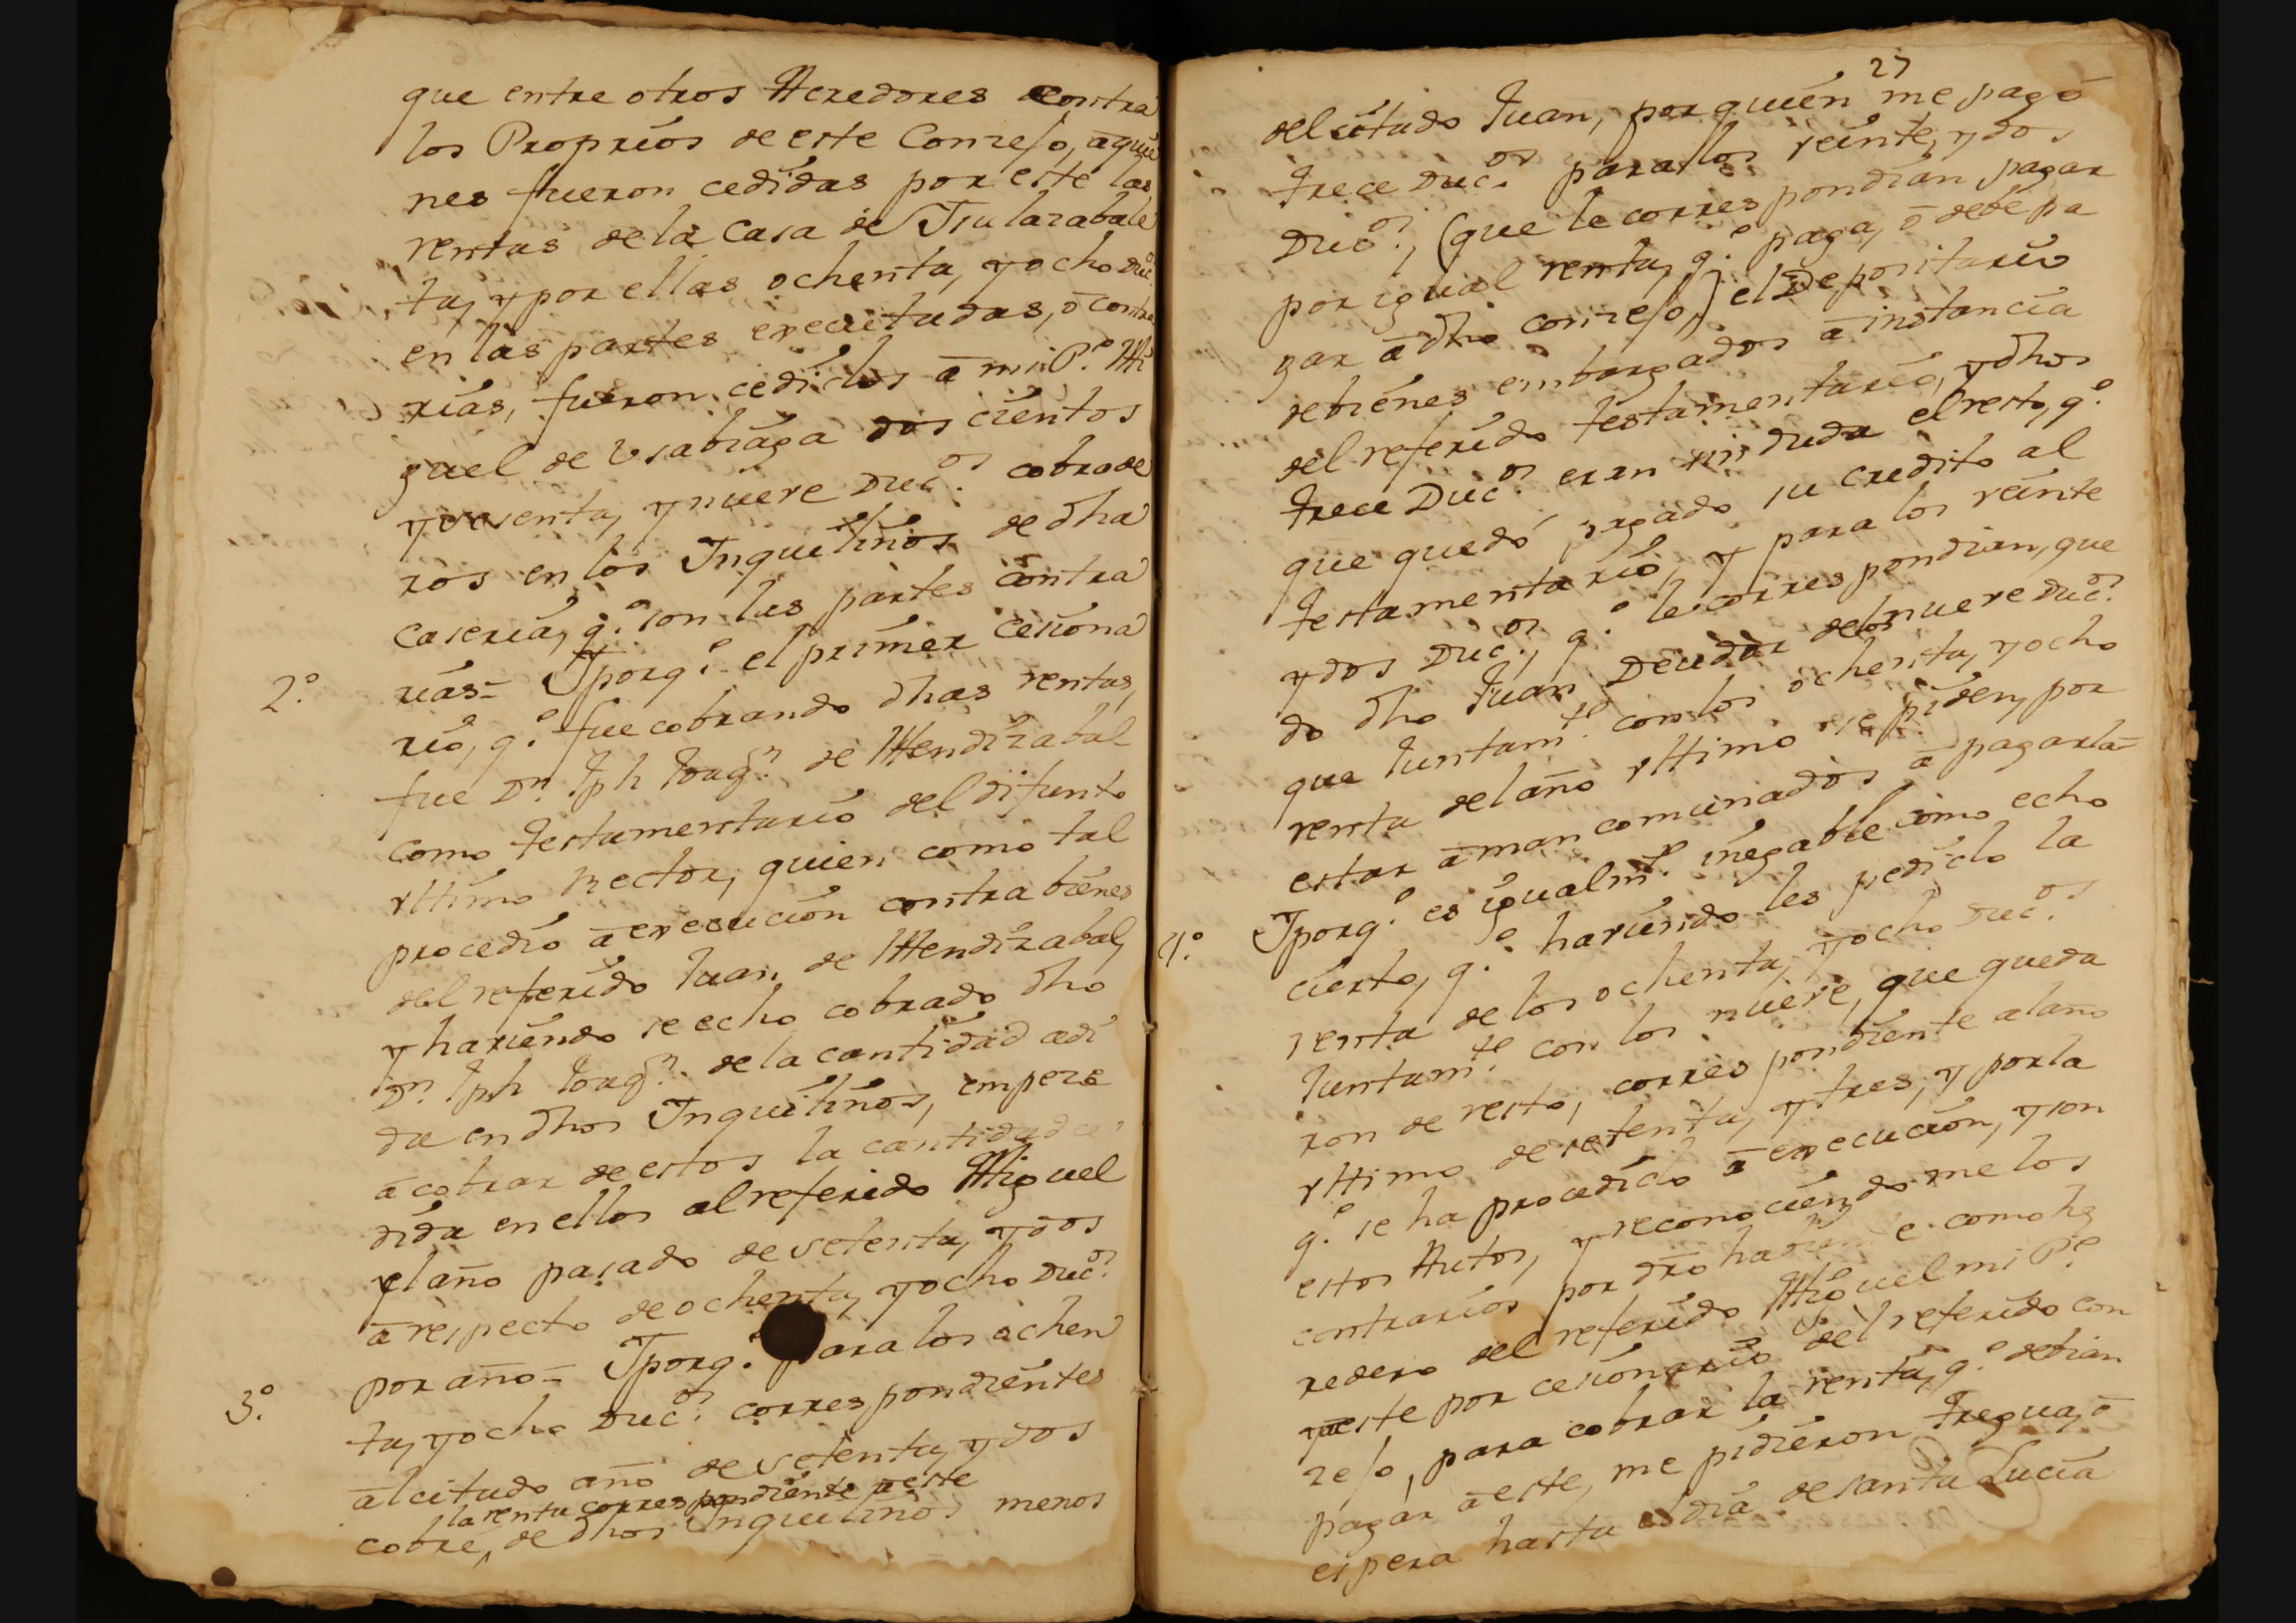 que entre otros Acredores contra
los Proprios de este Conzejo, aquie
nes fueron cedidas por este las
rentas de la Casa de Ysulazabale
ta, y por ellas ochenta, y ocho Duc.os
en las partes executadas, o contra
rias, fueron cedidos â mi P.e Mi
guel de Usabiaga doscientos
y sesenta, y nueve Duc.os cobrade
ros en los Ynquilinos de dha
Caseria, q.e son las partes contra
2.o rias= Yporq.e el primer cesiona
rio, q.e fue cobrando dhas rentas,
fue Dn. Iph Ioaq.n de Mendizabal
como testamentario del difunto
vltimo Rector, quien como tal
procedio â execucion contra bienes
del referido Iuan de Mendizabal,
y haviendose echo cobrado dho
Dn. Iph Ioaq.n de la cantidad cedi
da en dhos Ynquilinos, empeze
â cobrar de estos la cantidad ce
dida en ellos al referido Miguel
el año pasado de setenta, y dos
â respecto de ochenta, y ocho Duc.os
3.o por año= Yporq.e para los ochen
ta, y ocho Duc.os correspondientes
al citado año de setenta, y dos
la renta correspondiente a este
cobre, de dhos Ynquilinos menos
27
del citado Iuan, por quien me pagó
trece Duc.os para los veinte, y dos
Duc.os, (que le correspondian pagar
por igual renta, q.e paga, ô debe pa
gar â dho conzejo,) el Depositario
de bienes embargados â instancia
del referido testamentario, y dhos
trece Duc.os eran sin duda el resto, q.e
que quedó pagado su credito al
testamentario, y para los veinte
y dos Duc.os, q.e le correspondian, que
do dho Iuan Deudor de los nueve Duc.os
que Iuntam.te con los ochenta, y ocho
renta del año vltimo se piden, por
estar âmancomunados â pagarla=
4.o Yporq.e es igualm.te inegable como echo
cierto, q.e haviendoles pedido la
renta de los ochenta, y ocho Duc.os
Iuntam.te con los nueve, que queda
ron de resto, correspondiente al año
vltimo de setenta, y tres, y por la
q.e se ha procedido â execucion, y son
estos Autos, y reconociendome los
contrarios por dro
redero del referido Miguel mi P.e
y este por cesionario del referido con
zejo, para cobrar la renta, q.e debian
pagar â este, me pidieron tregua, ô
espera hasta el dia de santa Lucia